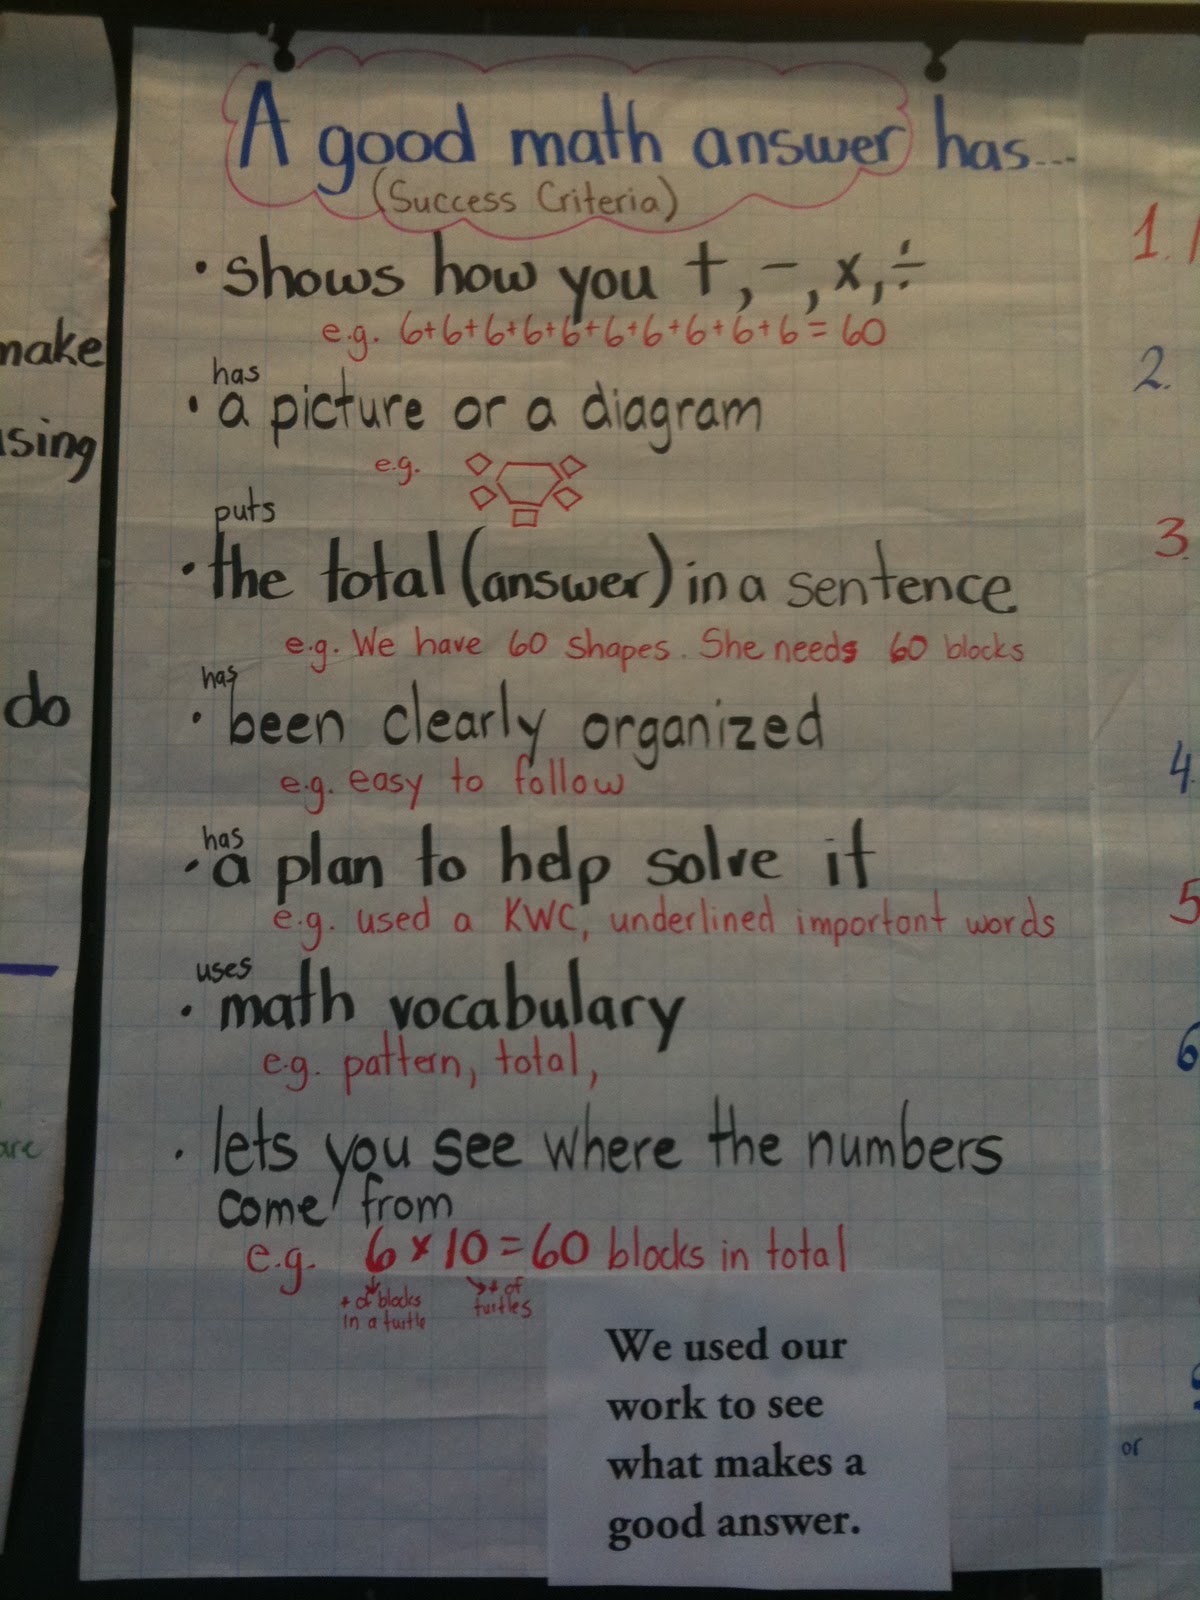 A good math answer has...
(Success Criteria)
• shows how you +, -, x, ÷
e.g. 6+6+6+6+6+6+6+6+6+6 = 60
has
• a picture or a diagram
e.g.
puts
• the total (answer) in a sentence
e.g. We have 60 shapes. She needs 60 blocks
has
• been clearly organized
e.g. easy to follow
has
• a plan to help solve it
e.g. used a KWC, underlined important words
uses
• math vocabulary
e.g. pattern, total,
• lets you see where the numbers
come from
e.g. 6 x 10 = 60 blocks in total
# of blocks
in a turtle
# of
turtles
We used our
work to see
what makes a
good answer.
make
using
do
are
1.
2.
3.
4.
5
6
or